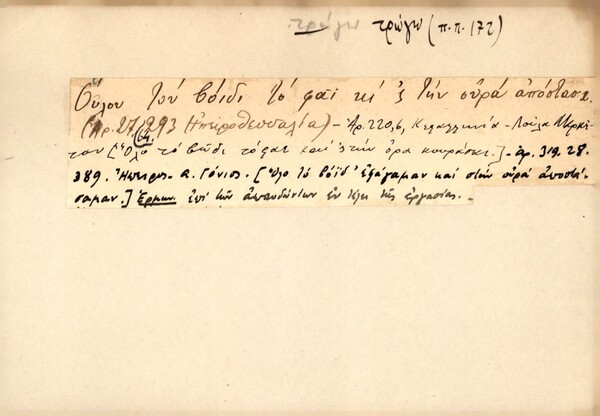 τρώγω τρώγω (π.π. 172)
Ούλου τού βόιδι τό φαϊ κι 'ς τήν ουρά απόστασι.
(Αρ. 27, 293 Ηπειροθεσσαλία) - Αρ. 220,6, Κεφαλληνία - Λουΐζα
του [Όλο τό βώδι τόφαε και 'ς τήν όρα κουράστ.] - αρ. 319. 28.
389. Ήπειρος - Α. Γόνιος. [Όλο τό βόϊδ' εφάγαμαν και στήν ουρά αποστά-
σαμαν.] Ερμην. επί των απαυδώντων εν τέλει της εργασίας. -